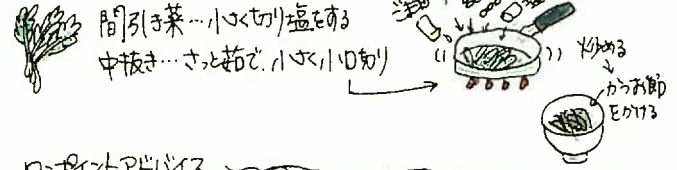 間引き菜…小さく切り塩をする
中抜き…さっと茹で、小さく小口切り
ごま油
炒める
かつお節
をかける
ワンポイントアドバイス